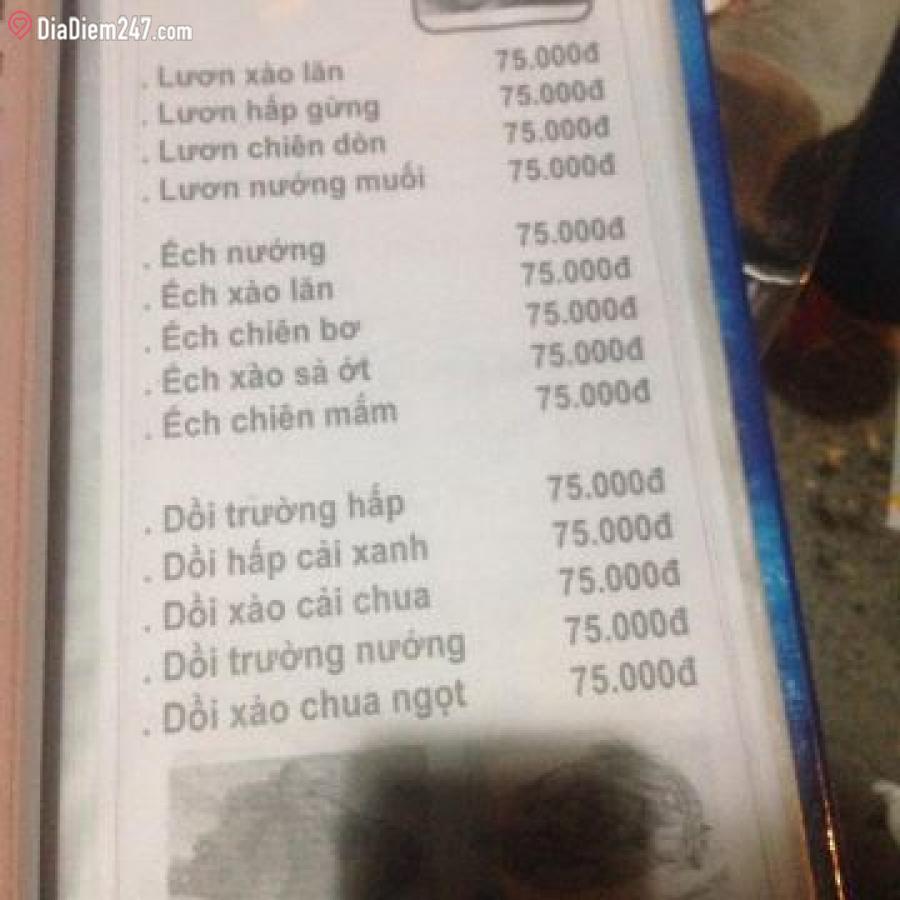 DiaDiem247.com
. Lươn xào lăn 75.000đ
. Lươn hấp gừng 75.000đ
. Lươn chiên dòn 75.000đ
. Lươn nướng muối 75.000đ
. Ếch nướng 75.000đ
. Ếch xào lăn 75.000đ
. Ếch chiên bơ 75.000đ
. Ếch xào sả ớt 75.000đ
. Ếch chiên mắm 75.000đ
. Dồi trường hấp 75.000đ
. Dồi hấp cải xanh 75.000đ
. Dồi xào cải chua 75.000đ
. Dồi trường nướng 75.000đ
. Dồi xào chua ngọt 75.000đ